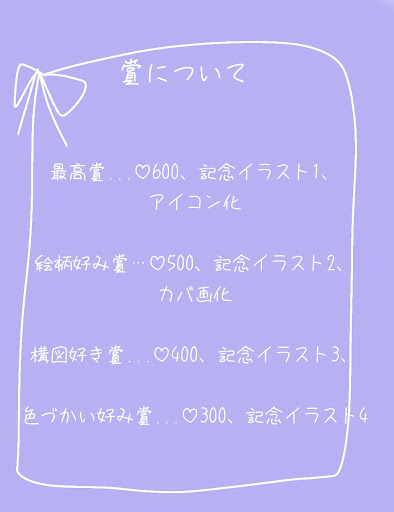 賞について
最高賞...♡600、記念イラスト1、
アイコン化
絵柄好み賞…♡500、記念イラスト2、
カバ画化
構図好き賞...♡400、記念イラスト3、
色づかい好み賞...♡300、記念イラスト4